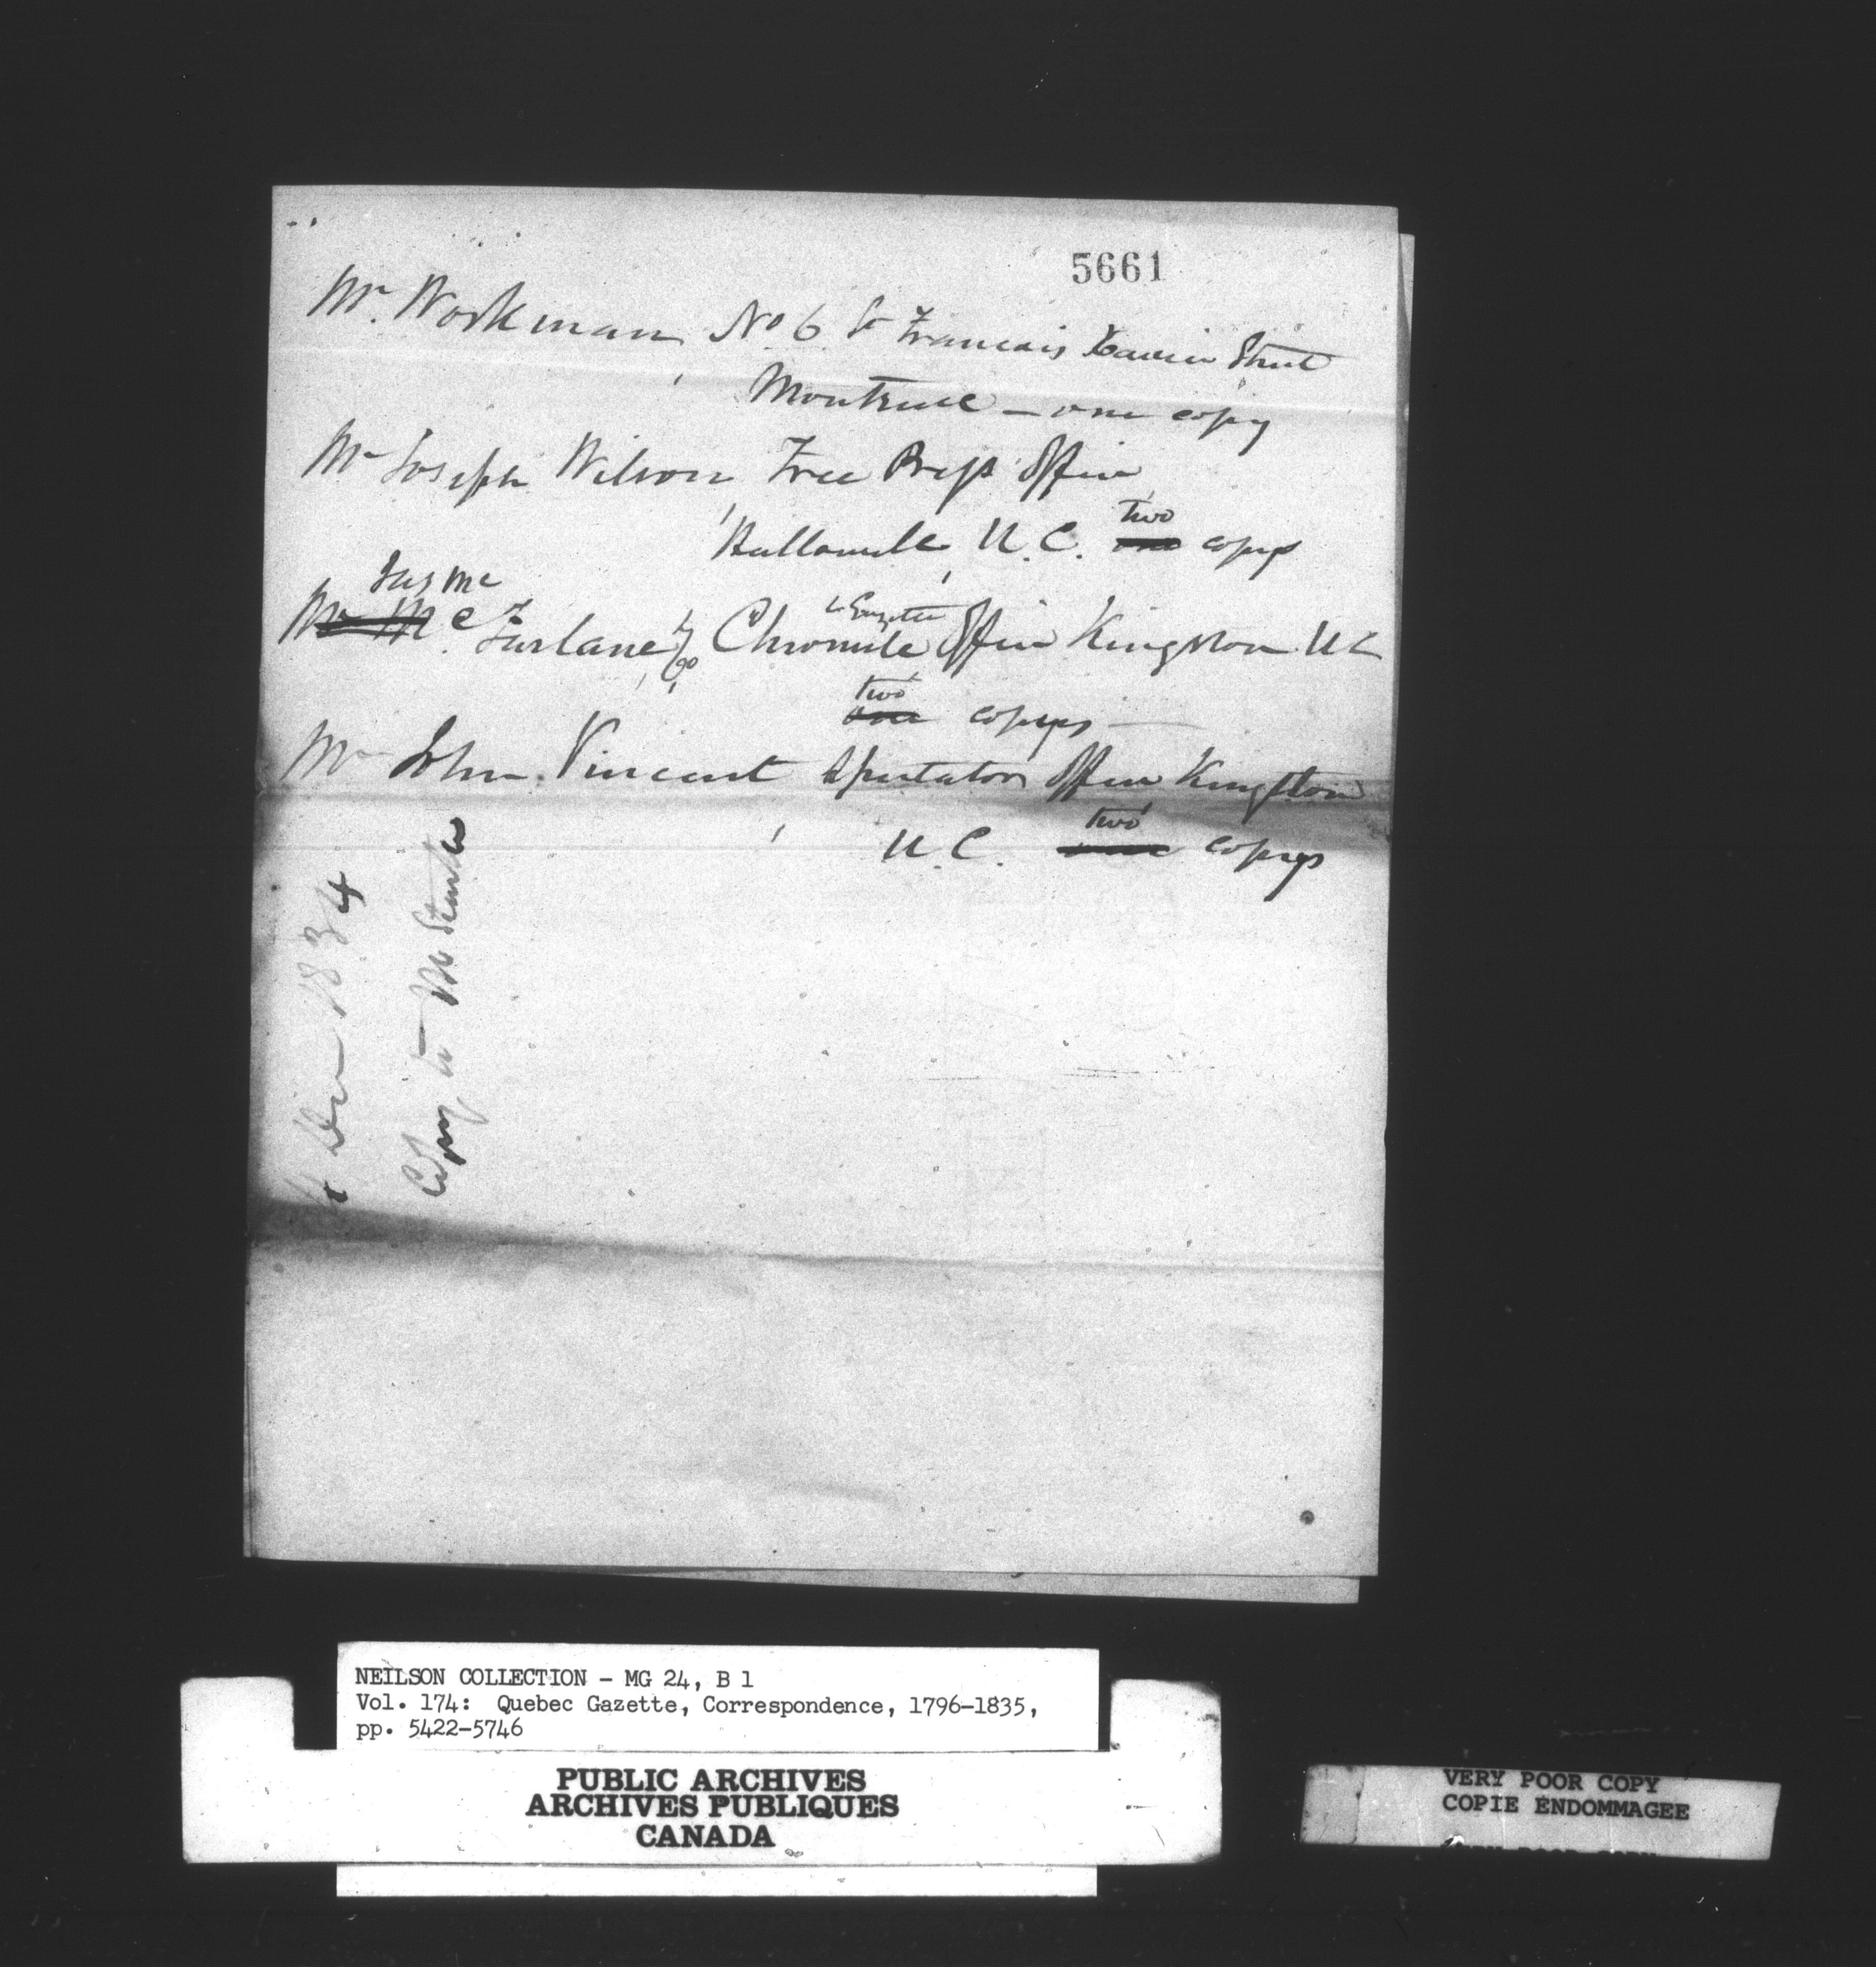 5661
Mr. Workman, No 6 St Francois Xavier Street
Montreal – one copy
Mr Joseph Wilson Free Press Office
Hallowell, U.C. two one copys
Jas Mc
Mr Mc Farlane & Co Chronicle & Gazette Office Kingston U C
two one copeys —
Mr John Vincent Spectator Office Kingston
U.C. two one copeys
4 Dec 1834
Copy to Mr
NEILSON COLLECTION - MG 24, B 1
Vol. 174: Quebec Gazette, Correspondence, 1796-1835,
pp. 5422-5746
PUBLIC ARCHIVES
ARCHIVES PUBLIQUES
CANADA
VERY POOR COPY
COPIE ENDOMMAGEE